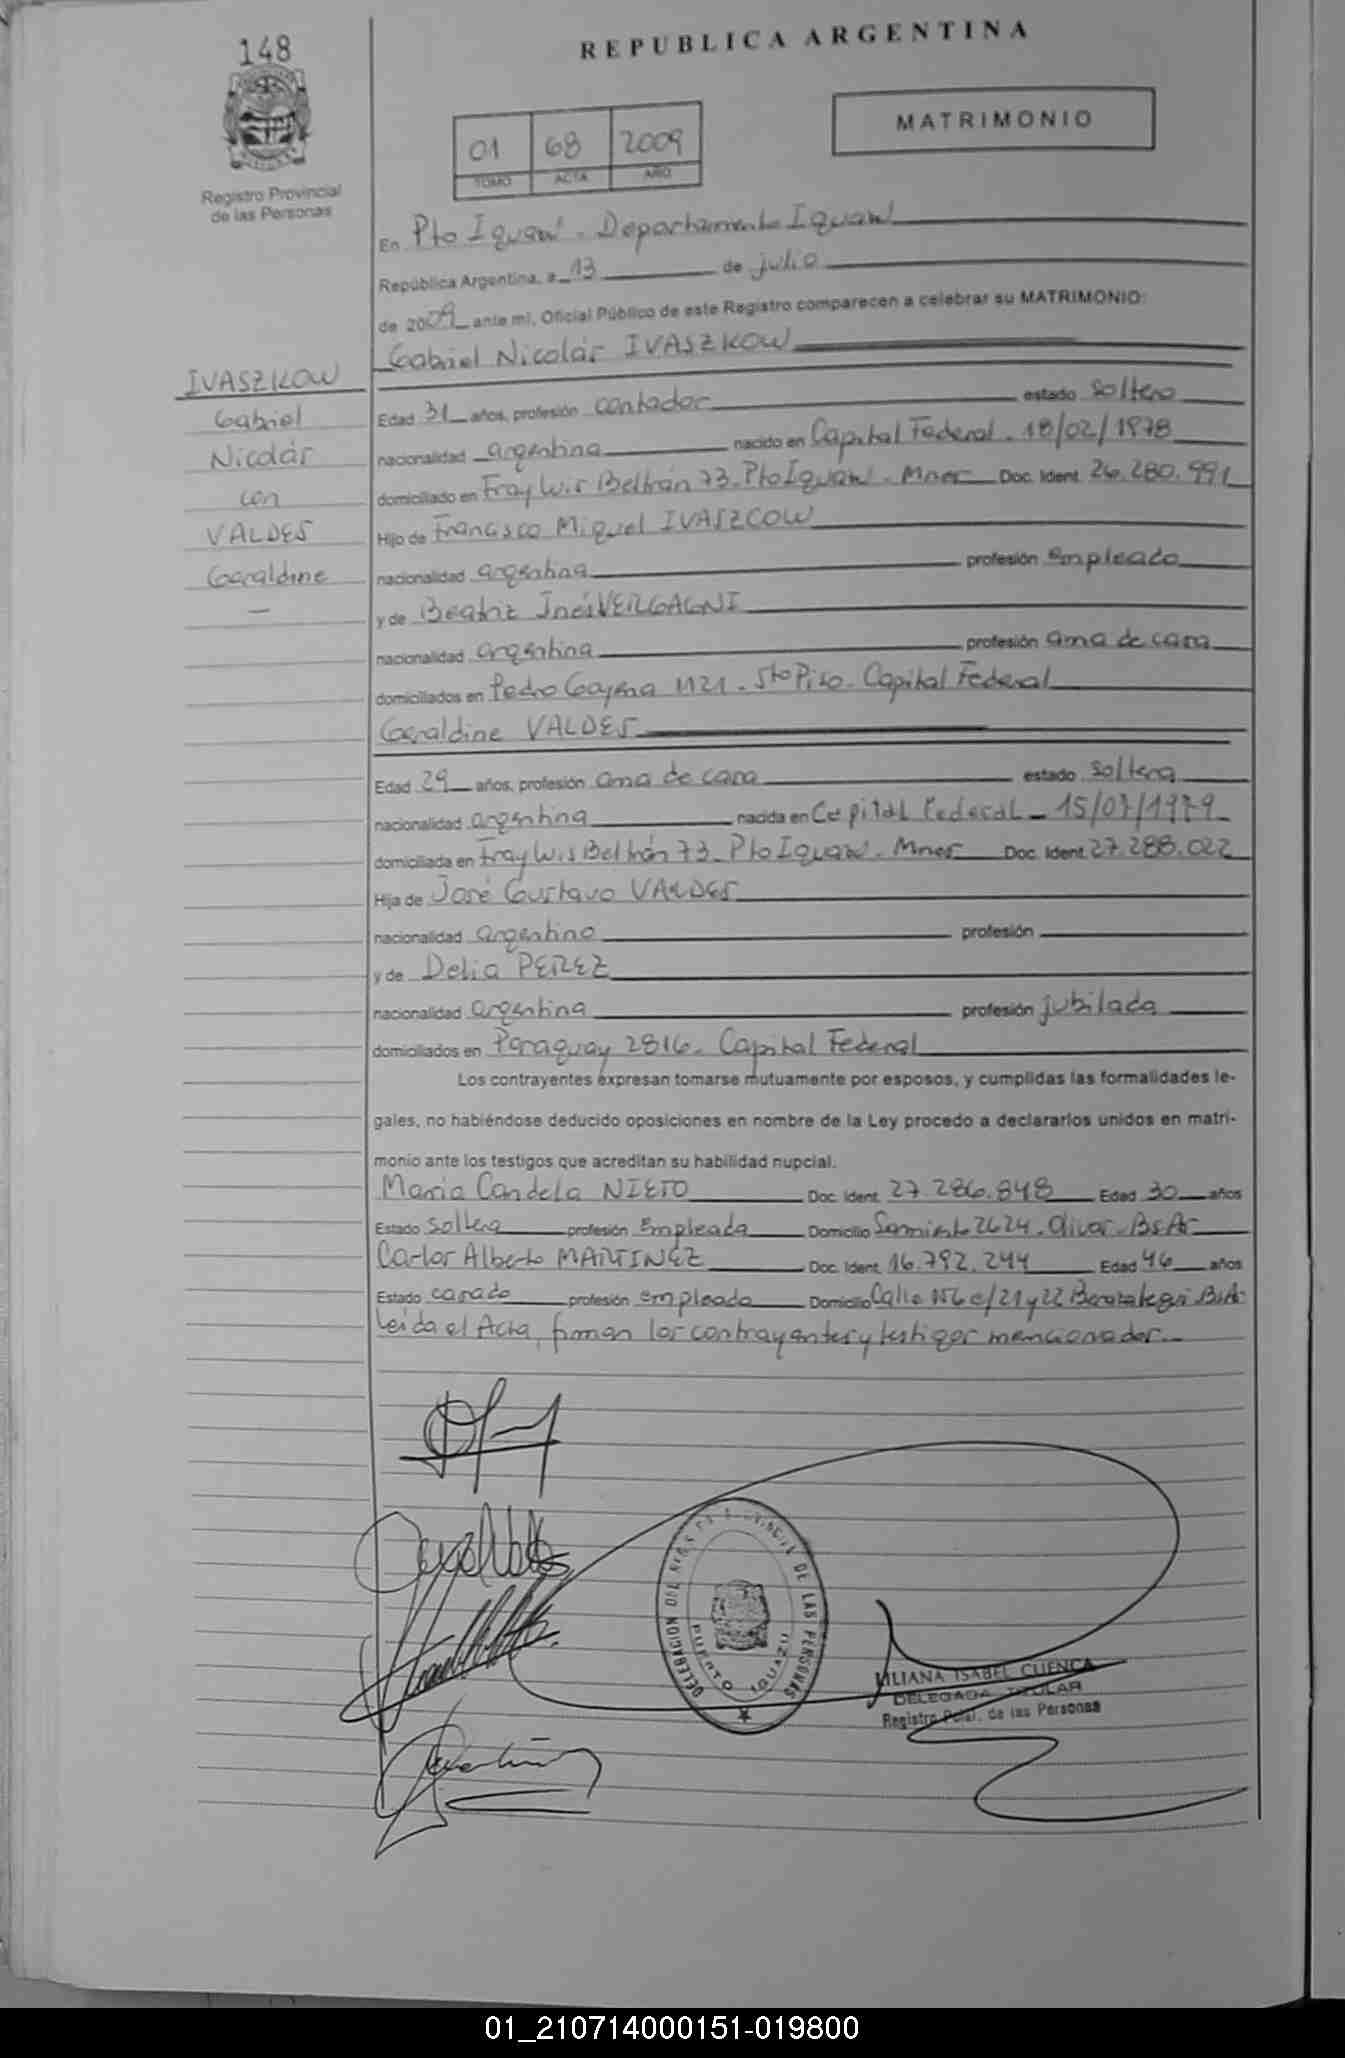 148
REPUBLICA ARGENTINA
MATRIMONIO
01 68 2009
TOMO ACTA AÑO
Registro Provincial
de las Personas
En Pto Iguazú - Departamento Iguazú
República Argentina, a 13 de julio
de 2009 ante mí, Oficial Público de este Registro comparecen a celebrar su MATRIMONIO:
Gabriel Nicolás IVASZKOW
IVASZKOW
Gabriel
Nicolás
con
VALDES
Geraldine
—
Edad 31 años, profesión contador estado soltero
nacionalidad argentina nacido en Capital Federal - 18/02/1978
domiciliado en Fray Luis Beltrán 73 - Pto Iguazú - Mnes Doc. Ident. 26.280.991
Hijo de Francisco Miguel IVASZCOW
nacionalidad argentina profesión empleado
y de Beatriz Inés VERGAGNI
nacionalidad argentina profesión ama de casa
domiciliados en Pedro Goyena 1121 - 5to Piso - Capital Federal
Geraldine VALDES
Edad 29 años, profesión ama de casa estado soltera
nacionalidad argentina nacida en Capital Federal - 15/07/1979
domiciliada en Fray Luis Beltrán 73 - Pto Iguazú - Mnes Doc. Ident. 27.288.022
Hija de José Gustavo VALDES
nacionalidad argentino profesión
y de Delia PEREZ
nacionalidad argentina profesión jubilada
domiciliados en Paraguay 2816 - Capital Federal
Los contrayentes expresan tomarse mutuamente por esposos, y cumplidas las formalidades le-
gales, no habiéndose deducido oposiciones en nombre de la Ley procedo a declararlos unidos en matri-
monio ante los testigos que acreditan su habilidad nupcial.
María Candela NIETO Doc. Ident. 27.286.848 Edad 30 años
Estado soltera profesión empleada Domicilio Sarmiento 2624 - Olivos - BsAs
Carlos Alberto MARTINEZ Doc. Ident. 16.792.244 Edad 46 años
Estado casado profesión empleado Domicilio Calle 156 e/21 y 22 Berazategui BsAs
Leída el Acta, firman los contrayentes y testigos mencionados.
DELEGACION DEL REGISTRO PROVINCIAL DE LAS PERSONAS
PUERTO IGUAZU
LILIANA ISABEL CUENCA
DELEGADA TITULAR
Registro Pcial. de las Personas
01_210714000151-019800